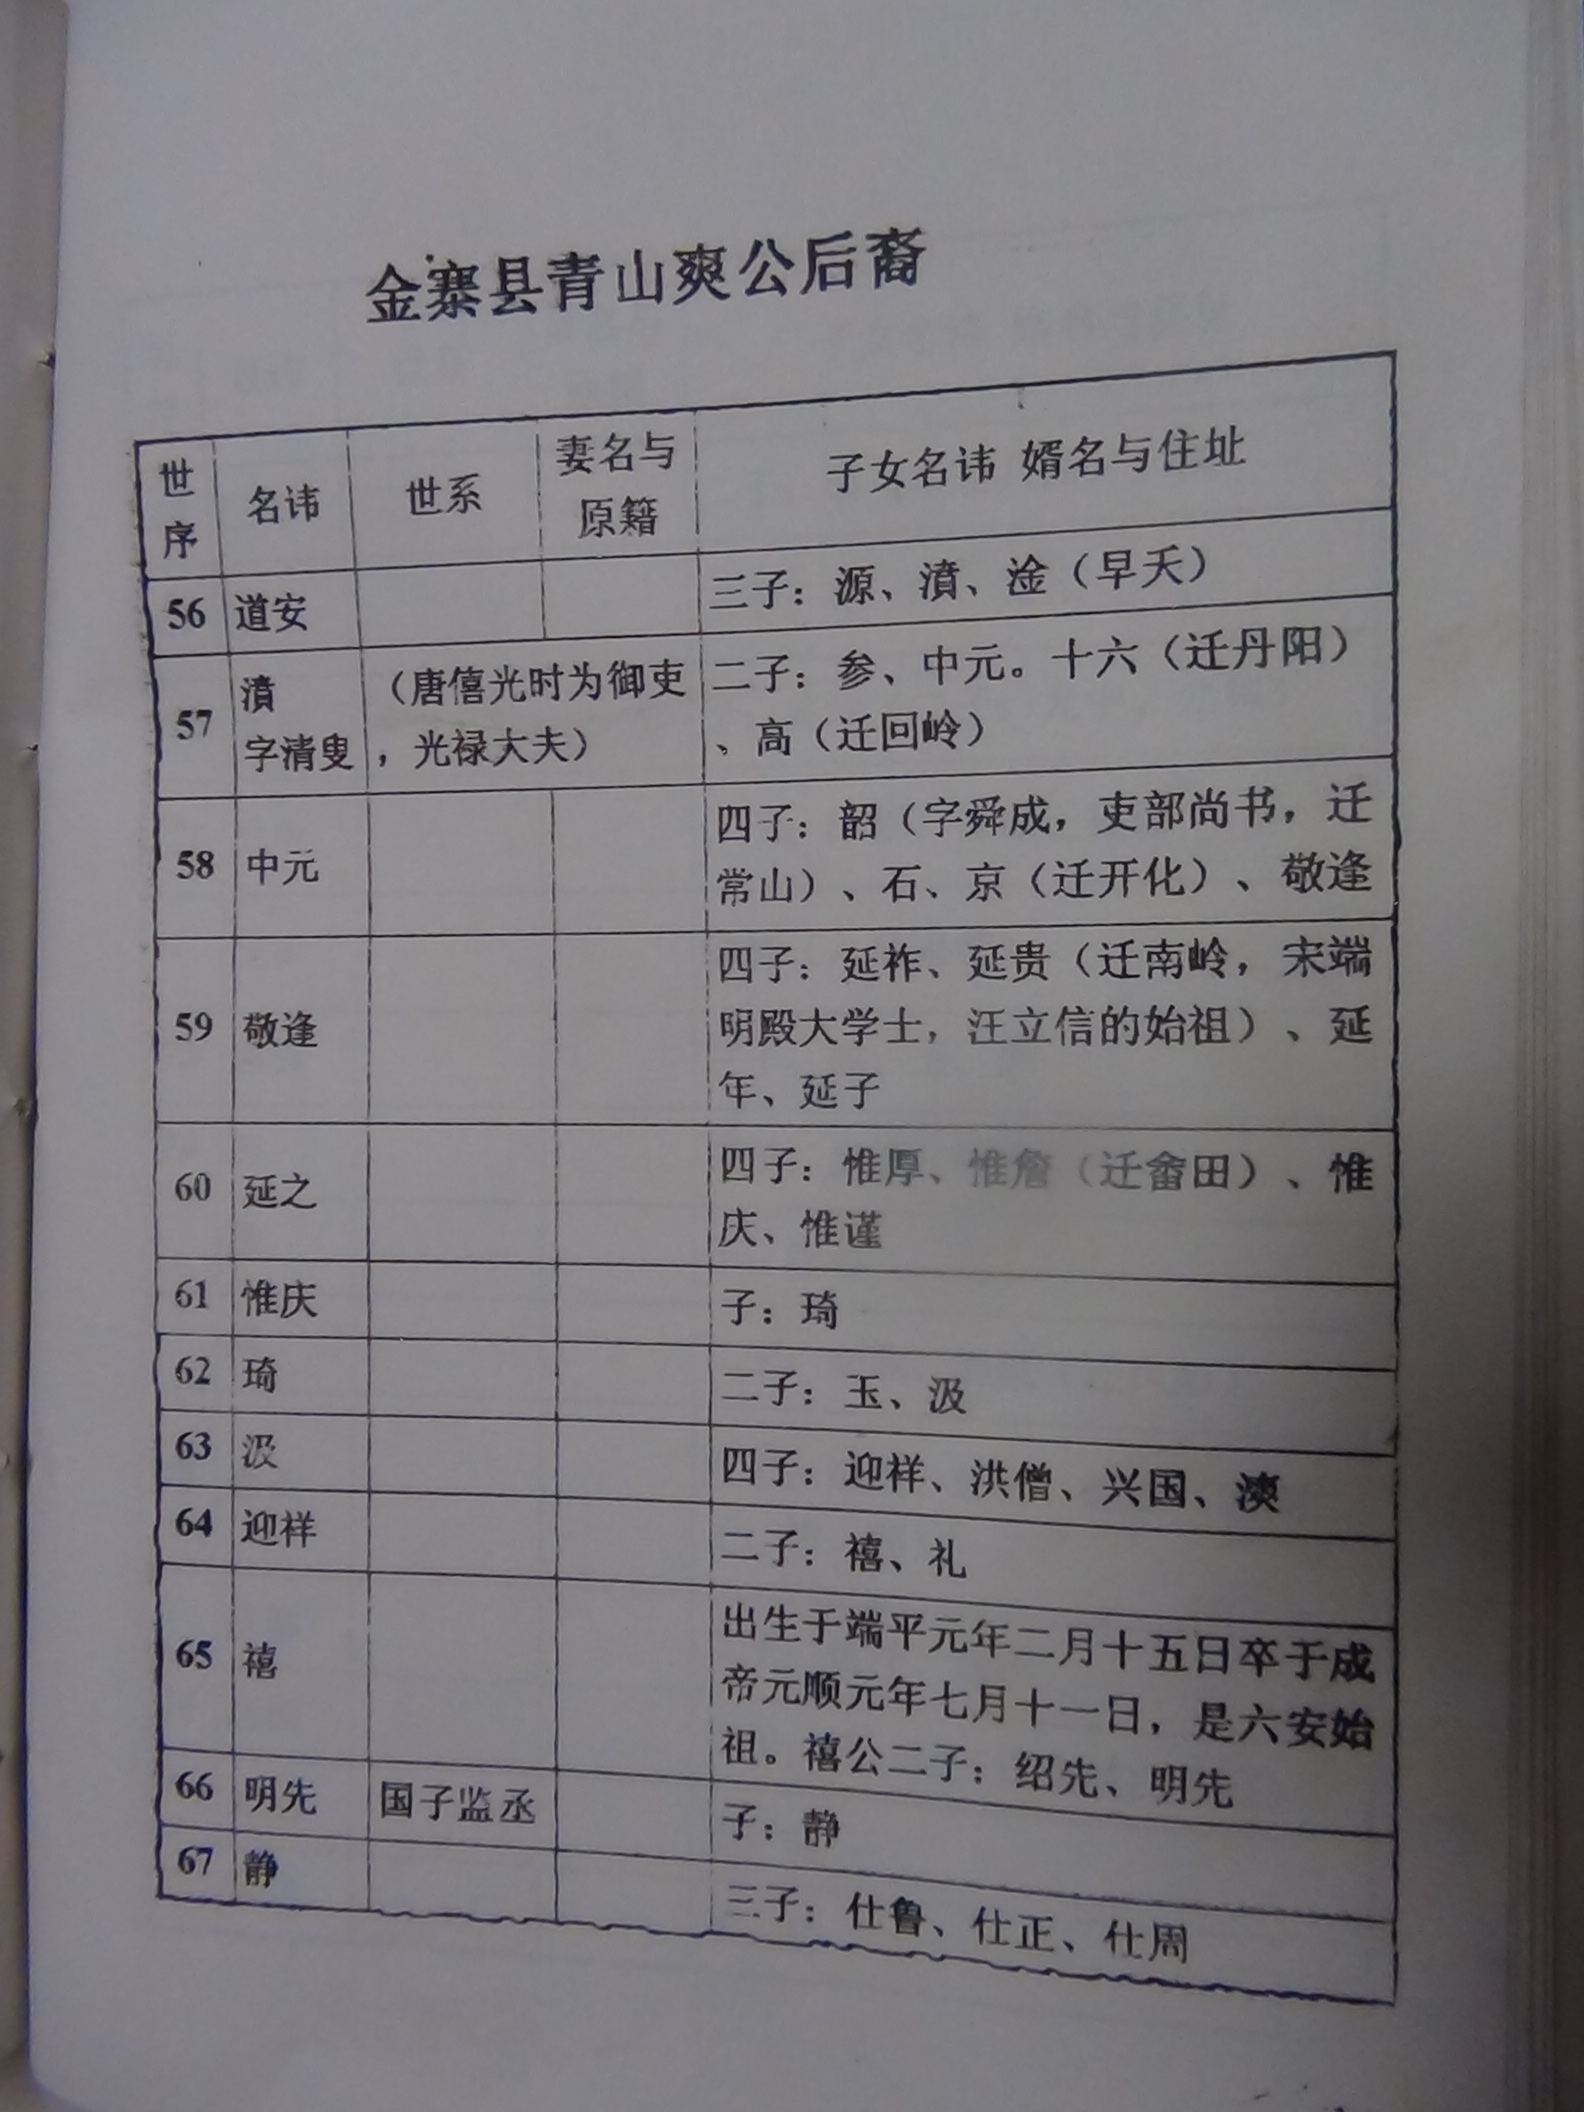 金寨县青山爽公后裔
世序 名讳 世系 妻名与原籍 子女名讳 婿名与住址
56 道安 三子：源、濆、淦（早夭）
57 濆 （唐僖光时为御吏 二子：参、中元。十六（迁丹阳）
字清叟 ，光禄大夫） 、高（迁回岭）
四子：韶（字舜成，吏部尚书，迁
58 中元 常山）、石、京（迁开化）、敬逢
四子：延祚、延贵（迁南岭，宋端
59 敬逢 明殿大学士，汪立信的始祖）、延
年、延子
60 延之 四子：惟厚、惟詹（迁畲田）、惟
庆、惟谨
61 惟庆 子：琦
62 琦 二子：玉、汲
63 汲 四子：迎祥、洪僧、兴国、澳
64 迎祥 二子：禧、礼
出生于端平元年二月十五日卒于成
65 禧 帝元顺元年七月十一日，是六安始
祖。禧公二子：绍先、明先
66 明先 国子监丞 子：静
67 静 三子：仕鲁、仕正、仕周